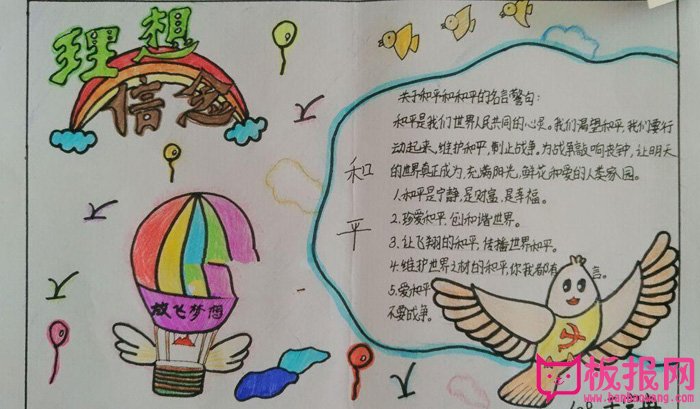 理想
信念
放飞梦想
和平
关于和平和和平的名言警句:
和平是我们世界人民共同的心灵。我们渴望和平,我们要行
动起来,维护和平,制止战争。为战争敲响丧钟,让明天
的世界真正成为,充满阳光,鲜花和爱的人类家园。
1.和平是宁静,是财富,是幸福。
2.珍爱和平,创和谐世界。
3.让飞翔的和平,传播世界和平。
4.维护世界之材的和平,你我都有
言。
5.爱和平
不要战争。
板报网
www.banbaowang.com